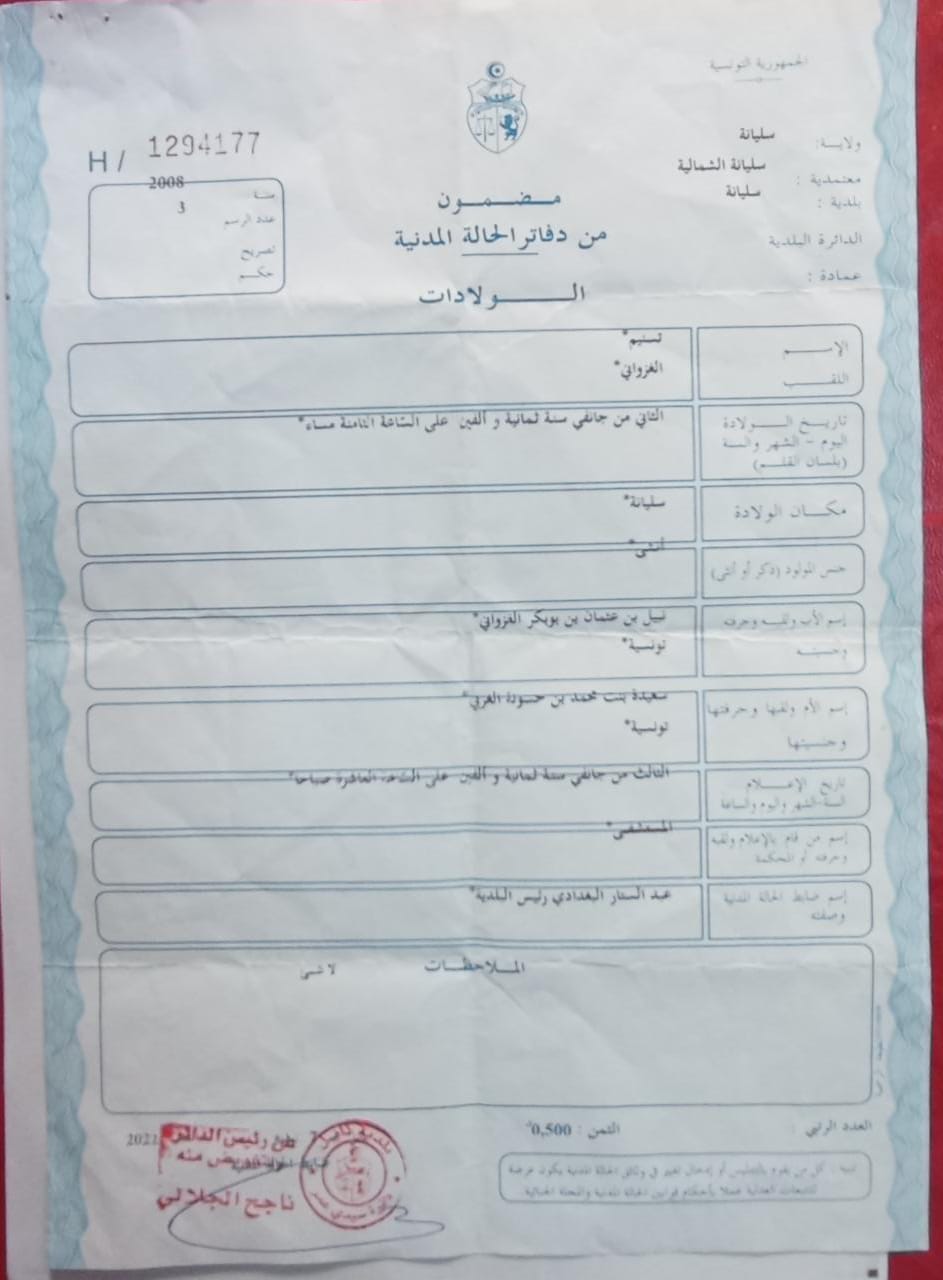 الجمهورية التونسية
ولاية: سليانة
معتمدية : سليانة الشمالية
بلدية : سليانة
الدائرة البلدية
عمادة :
H / 1294177
سنة 2008
عدد الرسم 3
تصريح
حكم
مضمون
من دفاتر الحالة المدنية
الولادات
الاسم تسنيم*
اللقب الغزواني*
تاريخ الولادة
اليوم - الشهر والسنة
(بلسان القلم)
الثاني من جانفي سنة ثمانية و ألفين على الساعة الثامنة مساء*
مكان الولادة سليانة*
جنس المولود (ذكر أو أنثى) أنثى*
إسم الأب ولقبه وحرفته نبيل بن عثمان بن بوبكر الغزواني*
وجنسيته تونسية*
إسم الأم ولقبها وحرفتها سعيدة بنت محمد بن حسونة الغربي*
وجنسيتها تونسية*
تاريخ الإعلام
السنة-الشهر واليوم والساعة
الثالث من جانفي سنة ثمانية و ألفين على الساعة العاشرة صباحا*
إسم من قام بالإعلام ولقبه
وحرفته أو المحكمة
المستشفى*
إسم ضابط الحالة المدنية
وصفته
عبد الستار البغدادي رئيس البلدية*
الملاحظات لا شى
العدد الرتبي :
الثمن : 0,500
تنبيه : كل من يقوم بالتدليس أو إدخال تغيير في وثائق الحالة المدنية يكون عرضة
للتتبعات العدلية عملا بأحكام قوانين الحالة المدنية والمجلة الجنائية
عن رئيس الدائرة
بتفويض منه
ناجح الجلالي